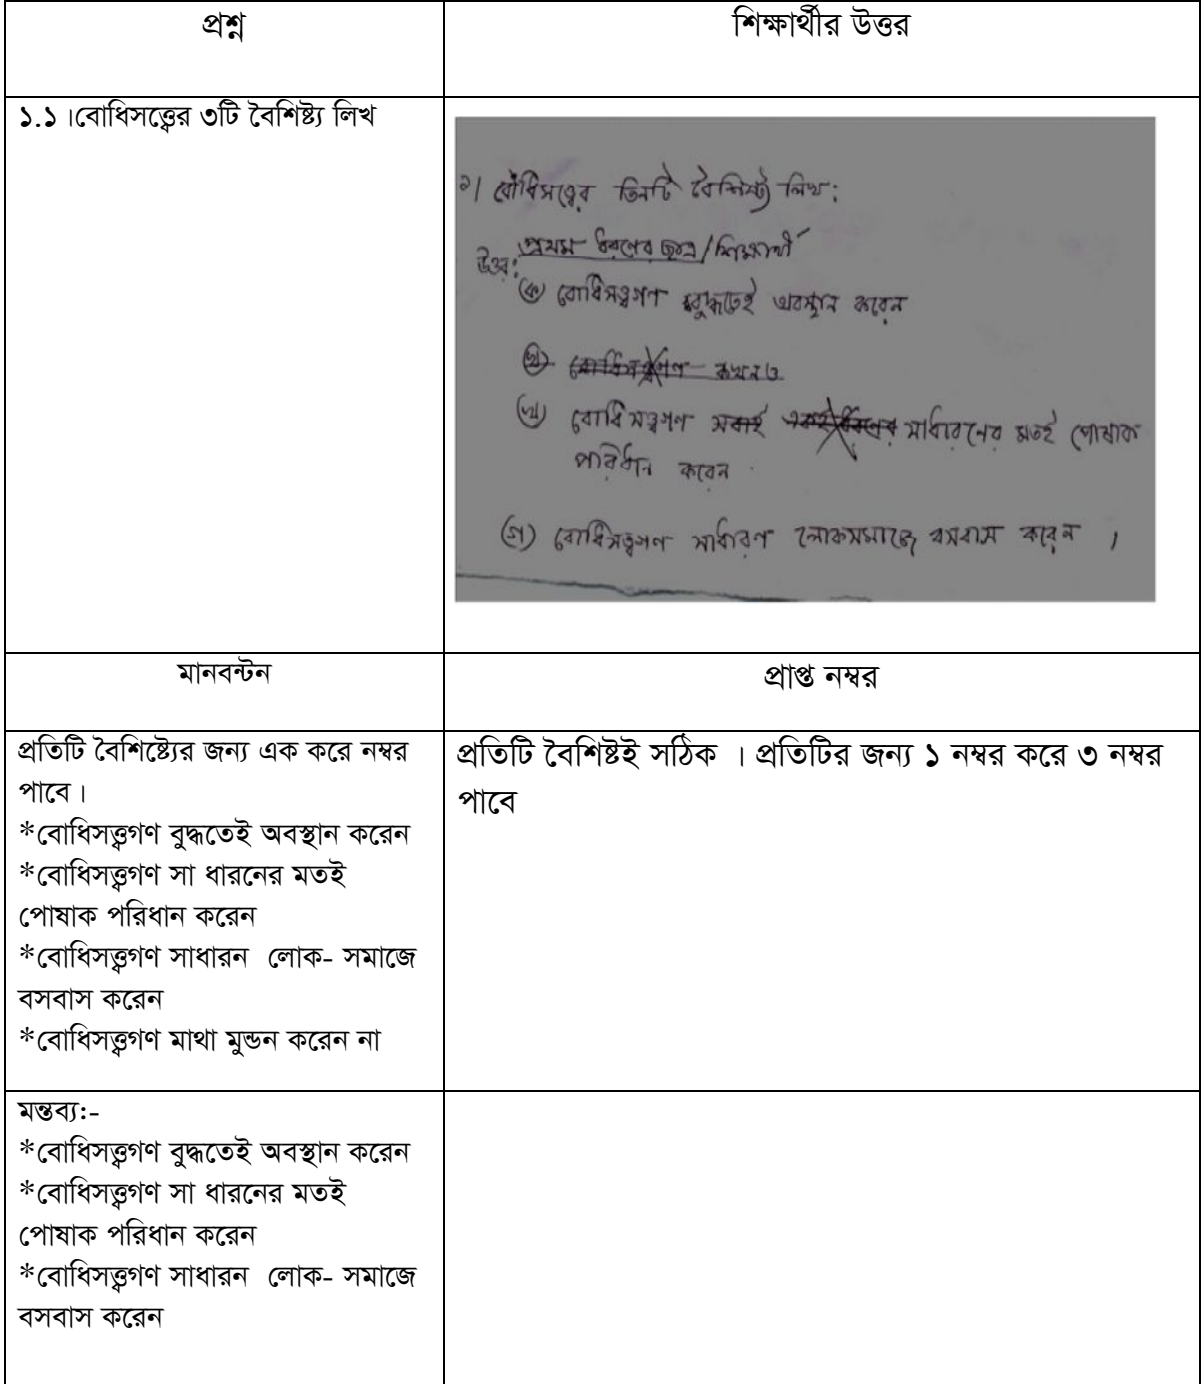 প্রশ্ন
শিক্ষার্থীর উত্তর
১.১ ।বোধিসত্ত্বের ৩টি বৈশিষ্ট্য লিখ
১। বোধিসত্ত্বের তিনটি বৈশিষ্ট্য লিখ:
উত্তর: প্রথম ধরণের ছাত্র/শিক্ষার্থী
(ক) বোধিসত্ত্বগণ বুদ্ধতেই অবস্থান করেন
(খ) বোধিসত্ত্বগণ কখনও
(খ) বোধিসত্ত্বগণ সবাই সাধারনের মতই পোষাক
পরিধান করেন
(গ) বোধিসত্ত্বগণ সাধারণ লোকসমাজে বসবাস করেন ।
মানবন্টন
প্রাপ্ত নম্বর
প্রতিটি বৈশিষ্ট্যের জন্য এক করে নম্বর
পাবে।
*বোধিসত্ত্বগণ বুদ্ধতেই অবস্থান করেন
*বোধিসত্ত্বগণ সা ধারনের মতই
পোষাক পরিধান করেন
*বোধিসত্ত্বগণ সাধারন লোক- সমাজে
বসবাস করেন
*বোধিসত্ত্বগণ মাথা মুন্ডন করেন না
প্রতিটি বৈশিষ্টই সঠিক । প্রতিটির জন্য ১ নম্বর করে ৩ নম্বর
পাবে
মন্তব্য:-
*বোধিসত্ত্বগণ বুদ্ধতেই অবস্থান করেন
*বোধিসত্ত্বগণ সা ধারনের মতই
পোষাক পরিধান করেন
*বোধিসত্ত্বগণ সাধারন লোক- সমাজে
বসবাস করেন